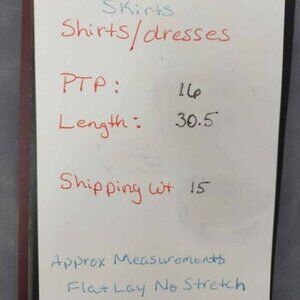 Skirts
Shirts/dresses
PTP: 16
Length: 30.5
Shipping wt 15
Approx Measurements
Flat Lay No Stretch